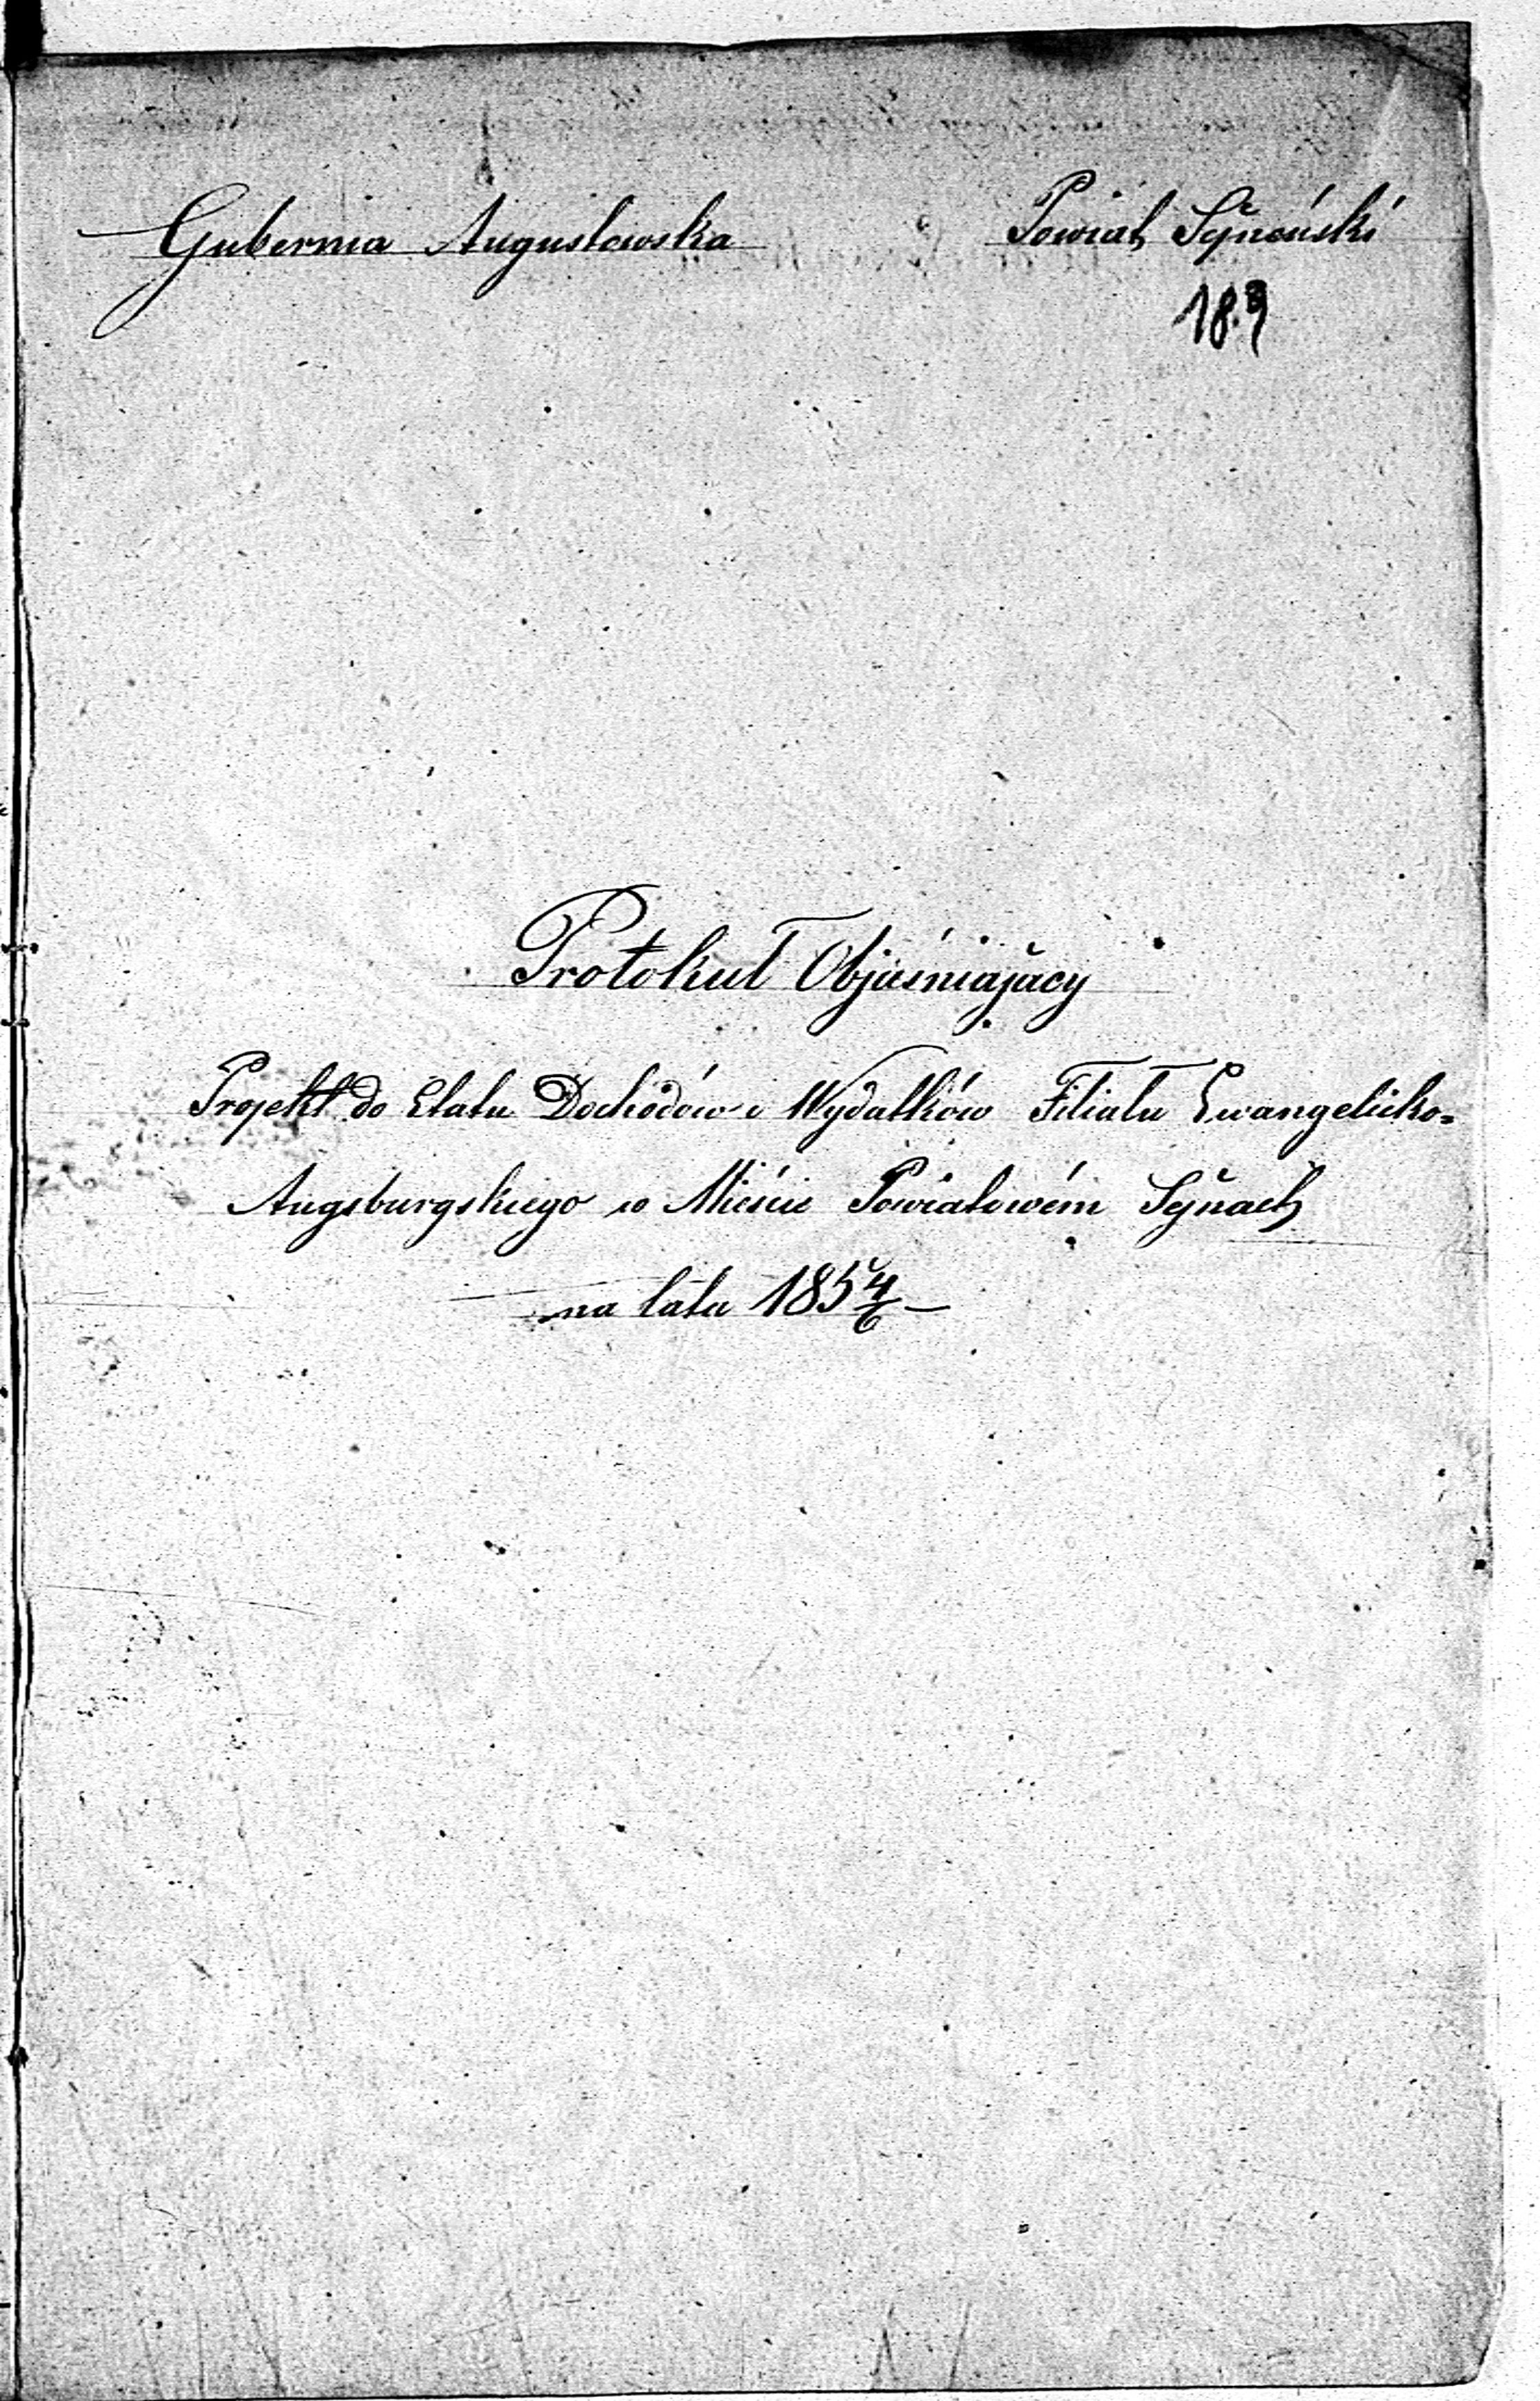 Gubernia Augustowska Powiat Sejneński
Protokuł Objaśniający
Projekt do Etatu Dochodów i Wydatków Filiału Ewangelicko=
Augsburgskiego w Mieście Powiatowém Sejnach
na lata 1854/6